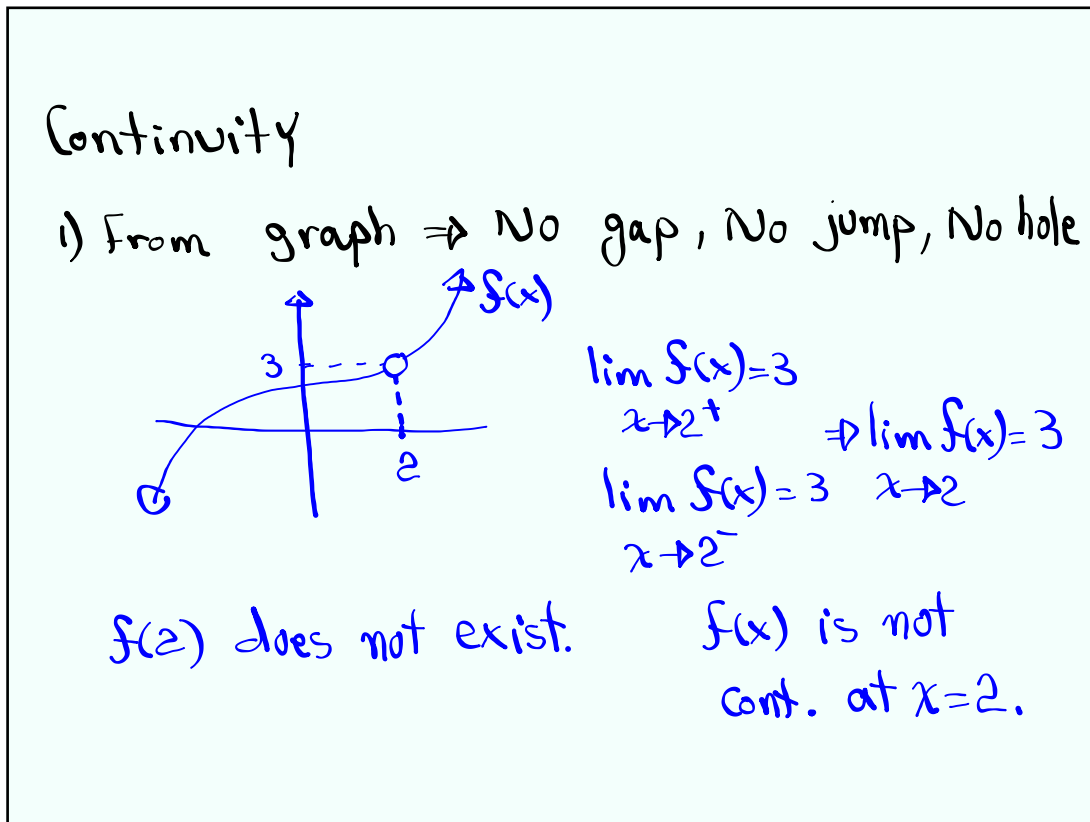 Continuity
1) From graph ⇒ No gap, No jump, No hole
f(x)
3
2
lim f(x) = 3
x→2⁺
⇒ lim f(x) = 3
x→2
lim f(x) = 3
x→2⁻
f(2) does not exist.
f(x) is not
cont. at x=2.